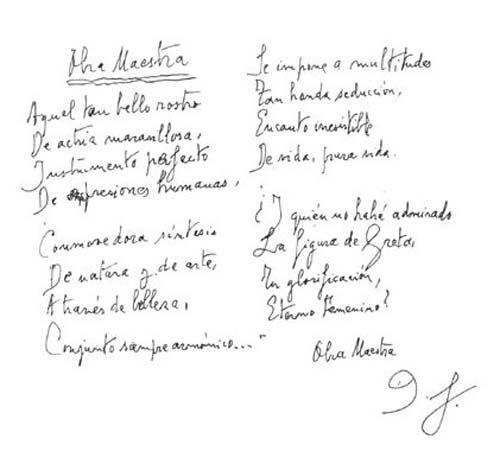 Obra Maestra
Aquel tan bello rostro
De actriz maravillosa,
Instrumento perfecto
De expresiones humanas,
Conmovedora síntesis
De natura y de arte,
A través de belleza,
Conjunto siempre armónico..."
Se impone a multitudes
Tan honda seducción,
Encanto
De vida, pura vida.
¿Y quién no habrá admirado
La figura de Greta,
Tu glorificación,
Eterno Femenino?
Obra Maestra
J.